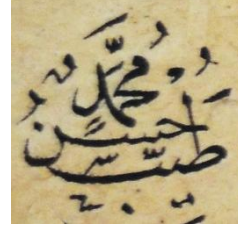 محمد
حسن
طيب